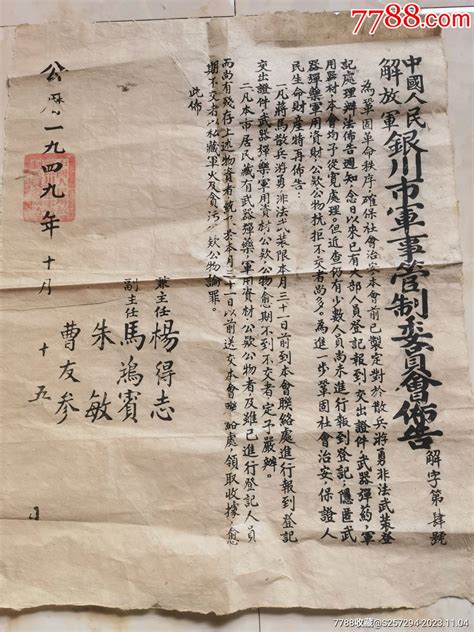 7788.com
中國人民
解放軍
銀川市軍事管制委員會佈告
解字第肆號
為鞏固革命秩序，確保社會治安本會前已製定對於散兵游勇非法武裝登
記處理辦法佈告週知，念日以來已有大部人員登記報到交出證件武器彈葯，軍
用器材本會均予從寬處理。但近查仍有少數人員尚未進行報到登記，隱匿武
器彈藥軍用資財公款公物抗拒不交者尚多。為進一步鞏固社會治安，保證人
民生命財產特再佈告。
一凡蔣馬散兵游勇非法武裝限本月三十一日前到本會聯絡處進行報到登記
交出證件武器彈藥軍用資材公款公物，愈期不到不交者定予嚴辦。
二凡本市居民藏有武器彈藥，軍用資材公款公物者，及雖已進行登記人員
而尚有殘存上述物資者，統于本月三十一日以前送交本會聯絡處，領取收據，愈
期不交者以私藏軍火及貪污公款公物論罪。
此佈
兼主任 楊得志
副主任 馬鴻賓
朱敏
曹友參
公曆一九四九年十月十五日
7788收藏@S257294·2023.11.04